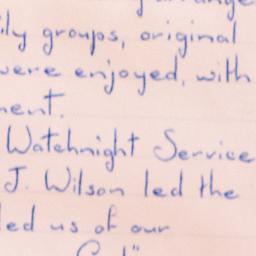 ily groups, original
were enjoyed, with
ment.
Watchnight Service
J. Wilson led the
led us of our
God"